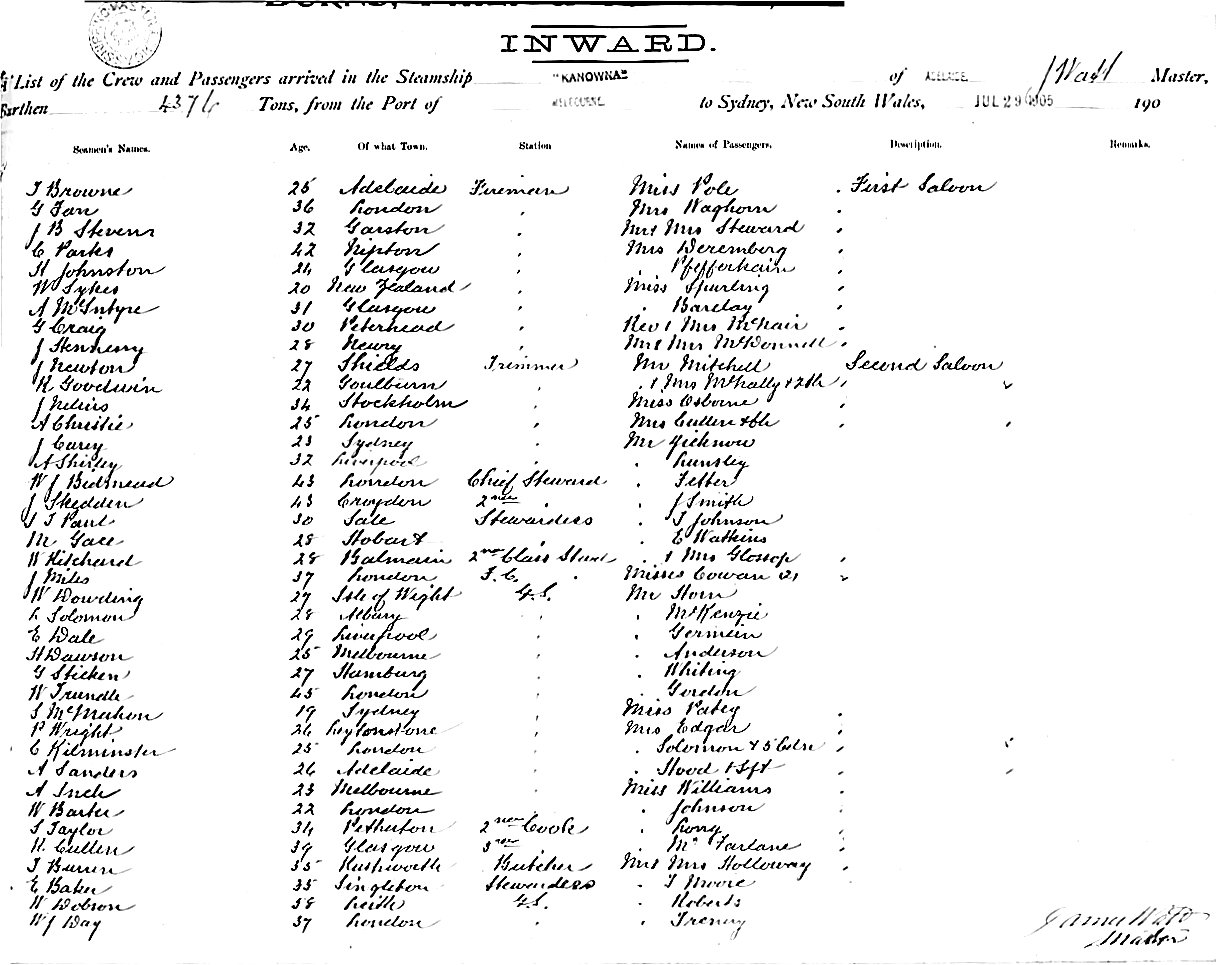 INWARD.
List of the Crew and Passengers arrived in the Steamship "KANOWNA" of ADELAIDE J Watt Master,
Burthen 4376 Tons, from the Port of MELBOURNE to Sydney, New South Wales, JUL 29 1905 190
Seamen's Names. Age. Of what Town. Station Names of Passengers. Description. Remarks.
T Browne 25 Adelaide Fireman Miss Pole First Saloon
G Fan 36 London " Mrs Waghorn "
J B Stevens 32 Garston " Mr & Mrs Steward "
C Parks 42 Ripton " Mrs Deremberg "
H Johnston 24 Glasgow " Pfefferkain "
W Sykes 20 New Zealand " Miss Spurling "
A McIntyre 31 Glasgow " " Barclay "
G Craig 30 Peterhead " Rev & Mrs McNair "
J Hennessy 28 Newry " Mr & Mrs McDonnell "
J Newton 27 Shields Trimmer Mr Mitchell Second Saloon
R Goodwin 22 Goulburn " " & Mrs McNally & 2 Ch " "
J Nelius 34 Stockholm " Miss Osborne "
A Christie 25 London " Mrs Cullen & Ch " "
J Carey 23 Sydney " Mr
A Shirley 32 Liverpool " " Lunsley
W J Bidmead 43 London Chief Steward " Felber
J Skedden 43 Croydon 2nd " " J Smith
S J Paul 30 Sale Stewardess " T Johnson
M Gace 28 Hobart " " E Watkins
W Kitchard 28 Balmain 2nd Class Stwd " & Mrs Glossop "
J Miles 37 London F.C. " Misses Cowan (2) "
W Dowding 27 Isle of Wight G.S. Mr Horn
L Solomon 28 Albury " " McKenzie
E Dale 29 Liverpool " " Germein
H Dawson 25 Melbourne " " Anderson
G Sticken 27 Hamburg " " Whiting
W Trundle 45 London " " Gordon
S McMahon 19 Sydney " Miss Patey "
P Wright 26 Leytonstone " Mrs Edgar "
C Kilminster 25 London " " Solomon & 5 " "
A Sanders 26 Adelaide " " Hood & Inft " "
A Inch 23 Melbourne " Miss Williams "
W Barker 22 London " " Johnson "
S Taylor 34 Petherton 2nd Cook " Lorry "
R Cullen 39 Glasgow 3rd " " McFarlane "
T Burren 35 Rushworth Butcher Mr & Mrs Holloway "
E Baker 35 Singleton Stewardess " T Moore
W Dobson 38 Leith G.S. " Roberts
W J Day 37 London " " Treniry
James Watt
Master